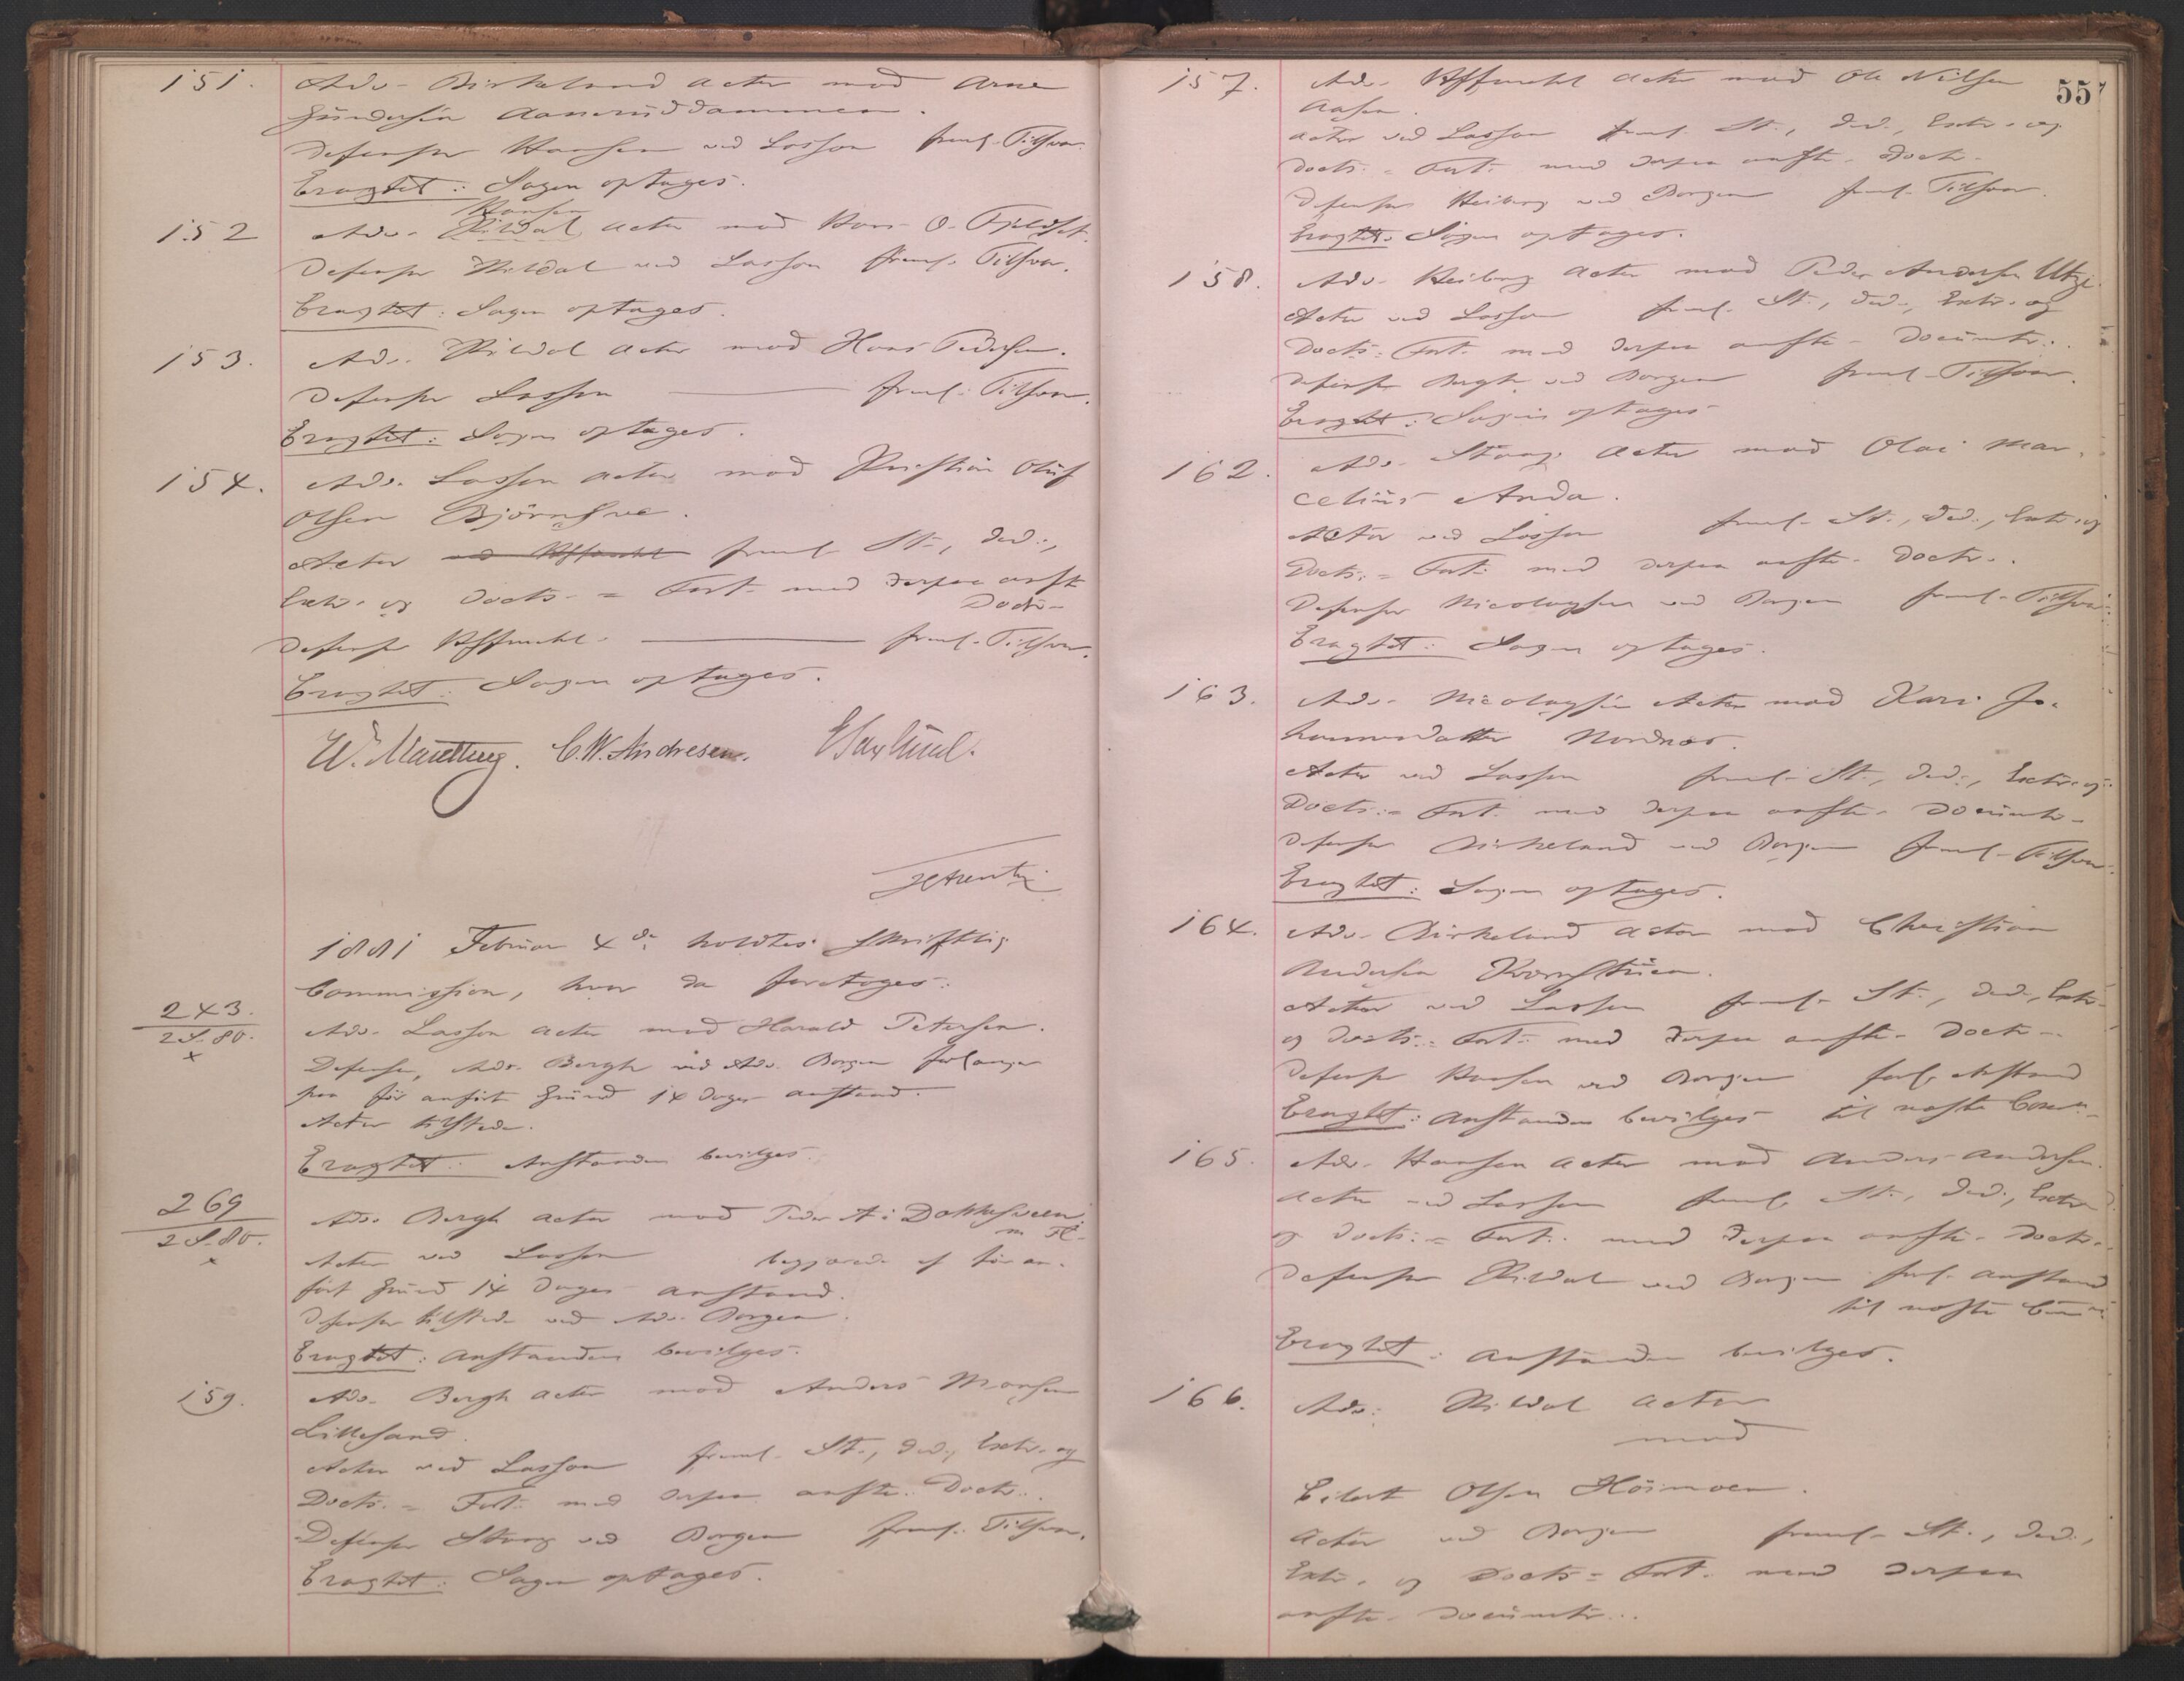 151. Adv. Birkeland Actor mod Arne
Gundersen Aameruddammen.
Defensor Hansen ved Lasson freml. Tilsvar.
Eragtet: Sagen optages.
Hansen
152 Adv. Rildal Actor mod Hans O. Fjeldset.
Defensor Rildal ved Lasson freml. Tilsvar.
Eragtet: Sagen optages.
153. Adv. Rildal Actor mod Hans Pedersen.
Defensor Lasson freml. Tilsvar.
Eragtet: Sagen optages.
154. Adv. Lasson Actor mod Kristian Oluf
Olsen
Actor ved freml. St., Ded.,
Extr. og Docts. = Fort. med derpaa anfte
Doctr.
Defensor freml. Tilsvar.
Eragtet: Sagen optages.
C.W. Andresen.
1881 Februar 4de holdtes skriftlig
Commission, hvor da foretoges:
243. Adv. Lasson Actor mod Harald Petersen.
2S. 80.
x
Defensor, Adv. Bergh ved Adv. Borgen forlanger
paa før anført Grund 14 Dages Anstand.
Actor tilstede.
Eragtet: Anstanden bevilges.
269 Adv. Bergh Actor mod Peder A.
m. Fl.
2S. 80.
x
Actor ved Lasson begjærede af før an-
ført Grund 14 Dages Anstand.
Defensor tilstede ved Adv. Borgen.
Eragtet: Anstanden bevilges.
159. Adv. Bergh Actor mod Anders Monsen
Lillesand.
Actor ved Lasson freml. St., Ded., Extr. og
Docts. = Fort. med derpaa anfte. Doctr.
Defensor Stang ved Borgen freml. Tilsvar.
Eragtet: Sagen optages.
557
157. Adv. Actor mod Ole Nilsen
Aasen.
Actor ved Lasson freml. St., Ded., Extr. og
Docts. = Fort. med derpaa anfte. Doctr.
Defensor Heiberg ved Borgen freml. Tilsvar.
Eragtet: Sagen optages.
158. Adv. Heiberg Actor mod Peder Andersen
Actor ved Lasson freml. St., Ded., Extr. og
Docts. = Fort. med derpaa anfte. Documtr.
Defensor Bergh ved Borgen freml. Tilsvar.
Eragtet: Sagen optages
162. Adv. Stang Actor mod Olai Mar-
celius Anda.
Actor ved Lasson freml. St., Ded., Extr. og
Docts. = Fort. med derpaa anfte. Doctr.
Defensor Nicolaysen ved Borgen freml. Tilsvar.
Eragtet: Sagen optages.
163. Adv. Nicolaysen Actor mod Kari Jo-
hannesdatter Nordnæs.
Actor ved Lasson freml. St., Ded., Extr. og
Docts. = Fort. med derpaa anfte. Documtr.
Defensor Birkeland ved Borgen freml. Tilsvar.
Eragtet: Sagen optages.
164. Adv. Birkeland Actor mod Christian
Andersen
Actor ved Lasson freml. St., Ded., Extr.
og Docts. = Fort. med derpaa anfte. Doctr.
Defensor Hansen ved Borgen forl. Anstand
Eragtet: Anstanden bevilges til næste Comm.
165. Adv. Hansen Actor mod Anders Andersen.
Actor ved Lasson freml. St., Ded., Extr.
og Docts. = Fort. med derpaa anfte. Doctr.
Defensor Rildal ved Borgen forl. Anstand
til næste Comm.
Eragtet: Anstanden bevilges.
166. Adv. Rildal Actor
mod
Eilert Olsen Höimoen.
Actor ved Borgen freml. St., Ded.,
Extr. og Docts = Fort. med derpaa
anfte. Documtr.